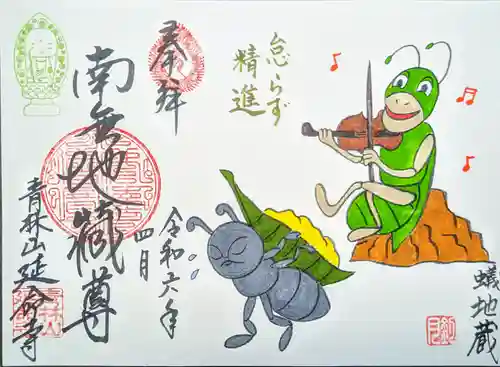 奉拝
南無地蔵尊
青林山延命寺
怠らず
精進
令和六年
四月
蟻地蔵